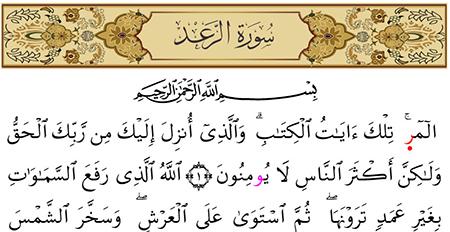 سُورَةُ الرَّعْدِ
بِسْمِ ٱللَّهِ ٱلرَّحْمَٰنِ ٱلرَّحِيمِ
الٓمٓرۚ تِلْكَ ءَايَٰتُ ٱلْكِتَٰبِۗ وَٱلَّذِىٓ أُنزِلَ إِلَيْكَ مِن رَّبِّكَ ٱلْحَقُّ
وَلَٰكِنَّ أَكْثَرَ ٱلنَّاسِ لَا يُومِنُونَ ۝١ ٱللَّهُ ٱلَّذِى رَفَعَ ٱلسَّمَٰوَٰتِ
بِغَيْرِ عَمَدٍ تَرَوْنَهَاۖ ثُمَّ ٱسْتَوَىٰ عَلَى ٱلْعَرْشِۖ وَسَخَّرَ ٱلشَّمْسَ